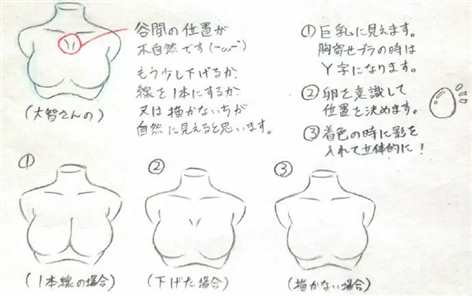 谷間の位置が
不自然です(-"ω-")
もう少し下げるか、
線を1本にするか、
又は描かない方が
自然に見えると思います。
(大智さんの)
①巨乳に見えます。
胸寄せブラの時は
Y字になります。
②卵を意識して
位置を決めます。
③着色の時に影を
入れて立体的に!
①
②
③
(1本線の場合)
(下げた場合)
(描かない場合)